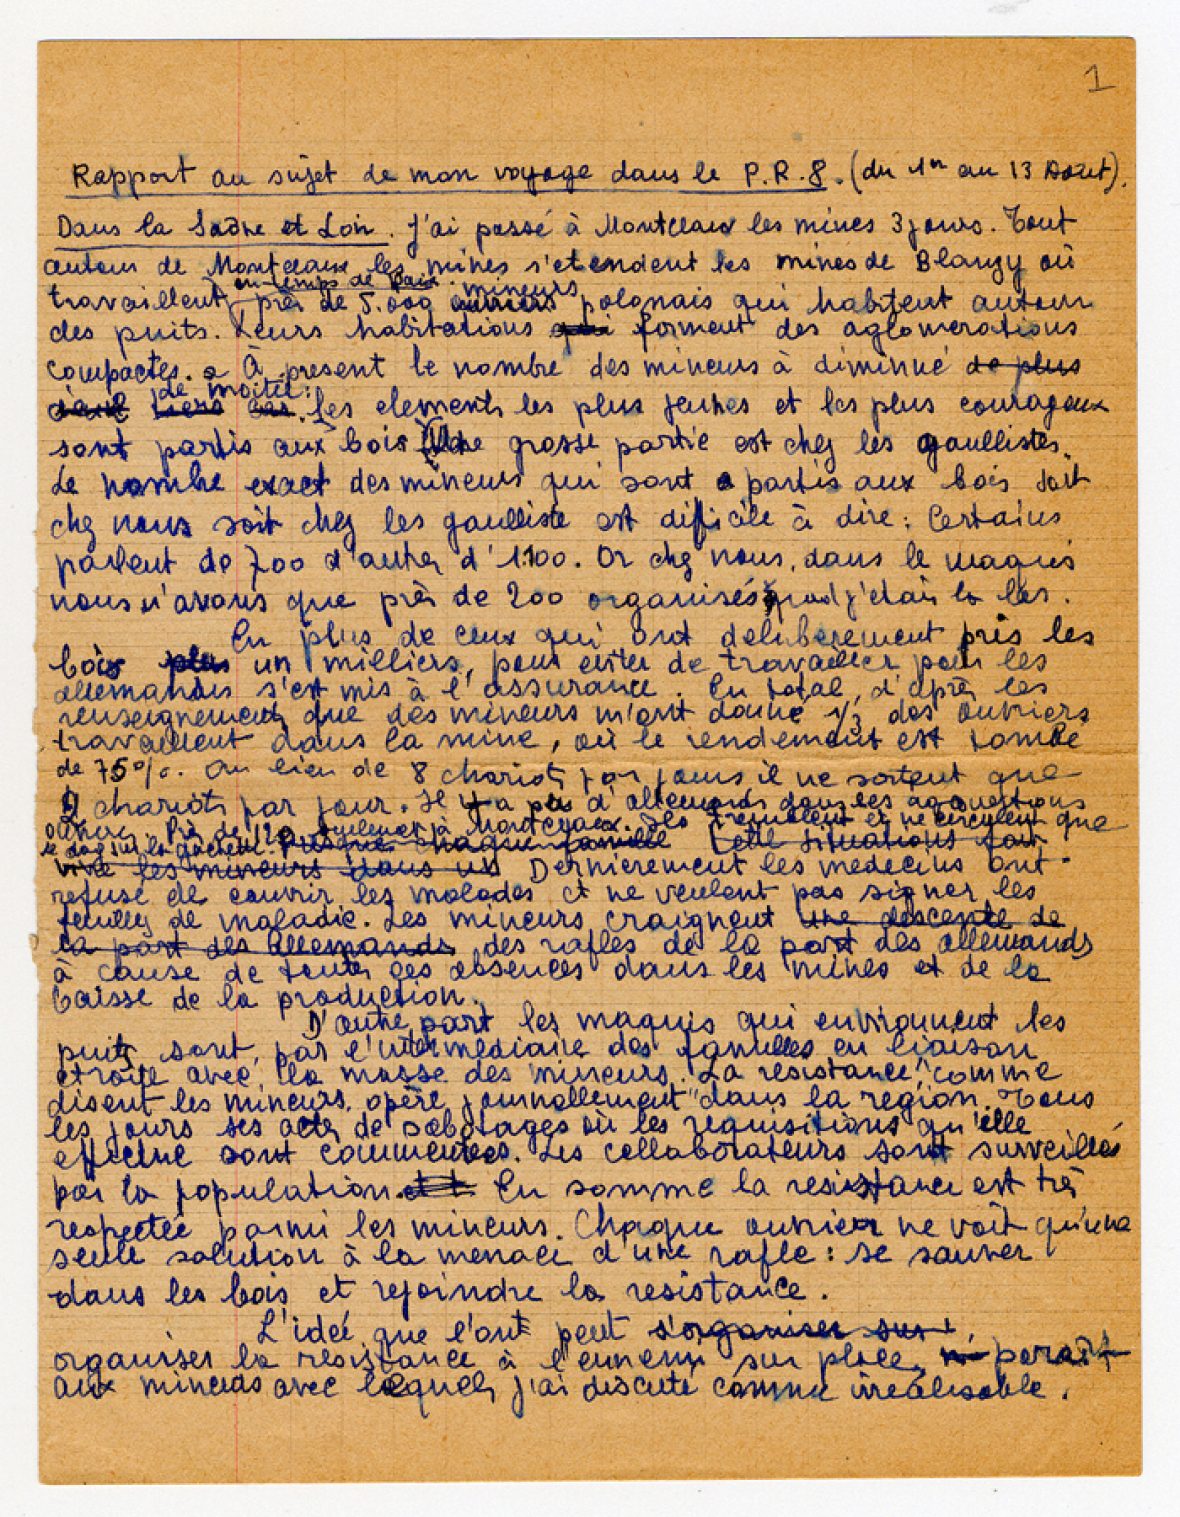 1
Rapport au sujet de mon voyage dans le P.R.8. (du 1er au 13 Août).
Dans la Saône et Loir. J'ai passé à Montceaux les mines 3 jours. Tout
autour de Montceaux les mines s'etendent les mines de Blanzy où
en temps de Paix mineurs
travaillent près de 5.000 ouvriers polonais qui habitent autour
des puits. Leurs habitations qui forment des aglomerations
compactes. À present le nombre des mineurs à diminué de plus
de moitié:
tiers Les elements les plus jeunes et les plus courageux
sont partis aux bois Une grosse partie est chez les gaullistes.
Le nombre exact des mineurs qui sont partis aux bois soit
chez nous soit chez les gaulliste est dificile à dire: Certains
parlent de 700 d'autres d'1100. Or chez nous, dans le maquis
nous n'avons que près de 200 organisés quad j'etais la bas.
En plus de ceux qui ont deluberement pris les
bois plus un milliers, pour eviter de travailler pour les
allemands s'est mis à l'assurance. En total, d'après les
renseignements que des mineurs m'ont donné 1/3 des ouvriers
travaillent dans la mine, où le rendement est tombé
de 75%. Au lieu de 8 chariots par jours il ne sortent que
2 chariots par jour. Il y a pas d'allemands dans les
Près de 120 à Montceaux. Ils tremblent et ne circulent que
le doig sur la gachette. Presque chaque famille Cette situations fait
vivre les mineurs dans un Dernierement les medecins ont
refusé de couvrir les malades et ne veulent pas signer les
feuilles de maladie. Les mineurs craignent une descente de
la part des Allemands des rafles de la part des allemands
à cause de toutes ces absences dans les mines et de la
baisse de la production.
D'autre part les maquis qui environnent les
puits sont, par l'intermediaire des familles en liaison
etroite avec la masse des mineurs. La resistance, comme
disent les mineurs, opère journellement" dans la region. Tous
les jours ses actes de sabotages où les requisitions qu'elle
effectue sont commentées. Les collaborateurs sont surveillés
par la population. En somme la resistance est très
respectée parmi les mineurs. Chaque ouvrier ne voit qu'une
seule solution à la menace d'une rafle: se sauver
dans les bois et rejoindre la resistance.
L'idée que l'ont peut s'organiser sur
organiser la resistance à l'ennemi sur place, parait
aux mineurs avec lesquels j'ai discuté comme irrealisable.